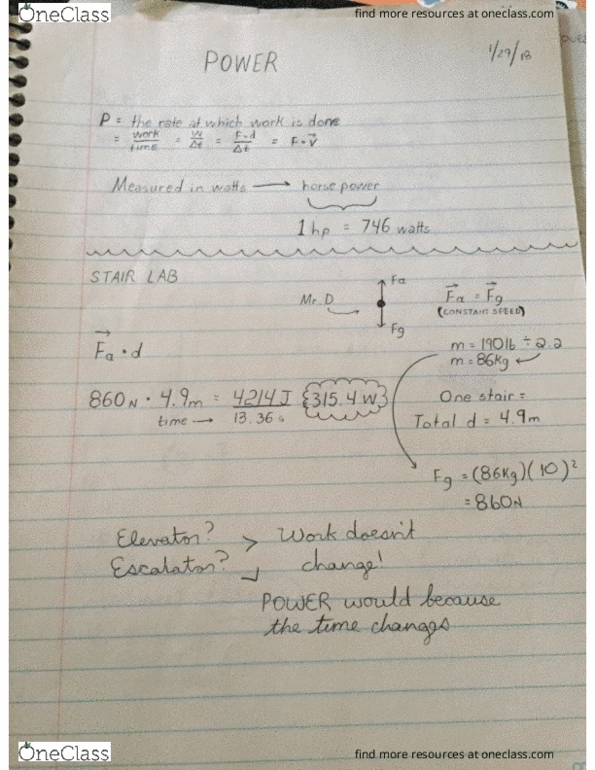 OneClass
find more resources at oneclass.com
POWER
1/29/18
P = the rate at which work is done
= work/time = W/Δt = F·d/Δt = F·v⃗
Measured in watts → horse power
1 hp = 746 watts
STAIR LAB
Mr. D
Fa
Fg
F⃗a = F⃗g
(CONSTANT SPEED)
F⃗a · d
m = 190lb ÷ 2.2
m = 86kg
860N · 4.9m = 4214J 315.4 W
time → 13.36 s
One stair =
Total d = 4.9m
Fg = (86kg)(10)²
= 860N
Elevator? > Work doesn't
Escalator? change!
POWER would because
the time changes
OneClass
find more resources at oneclass.com